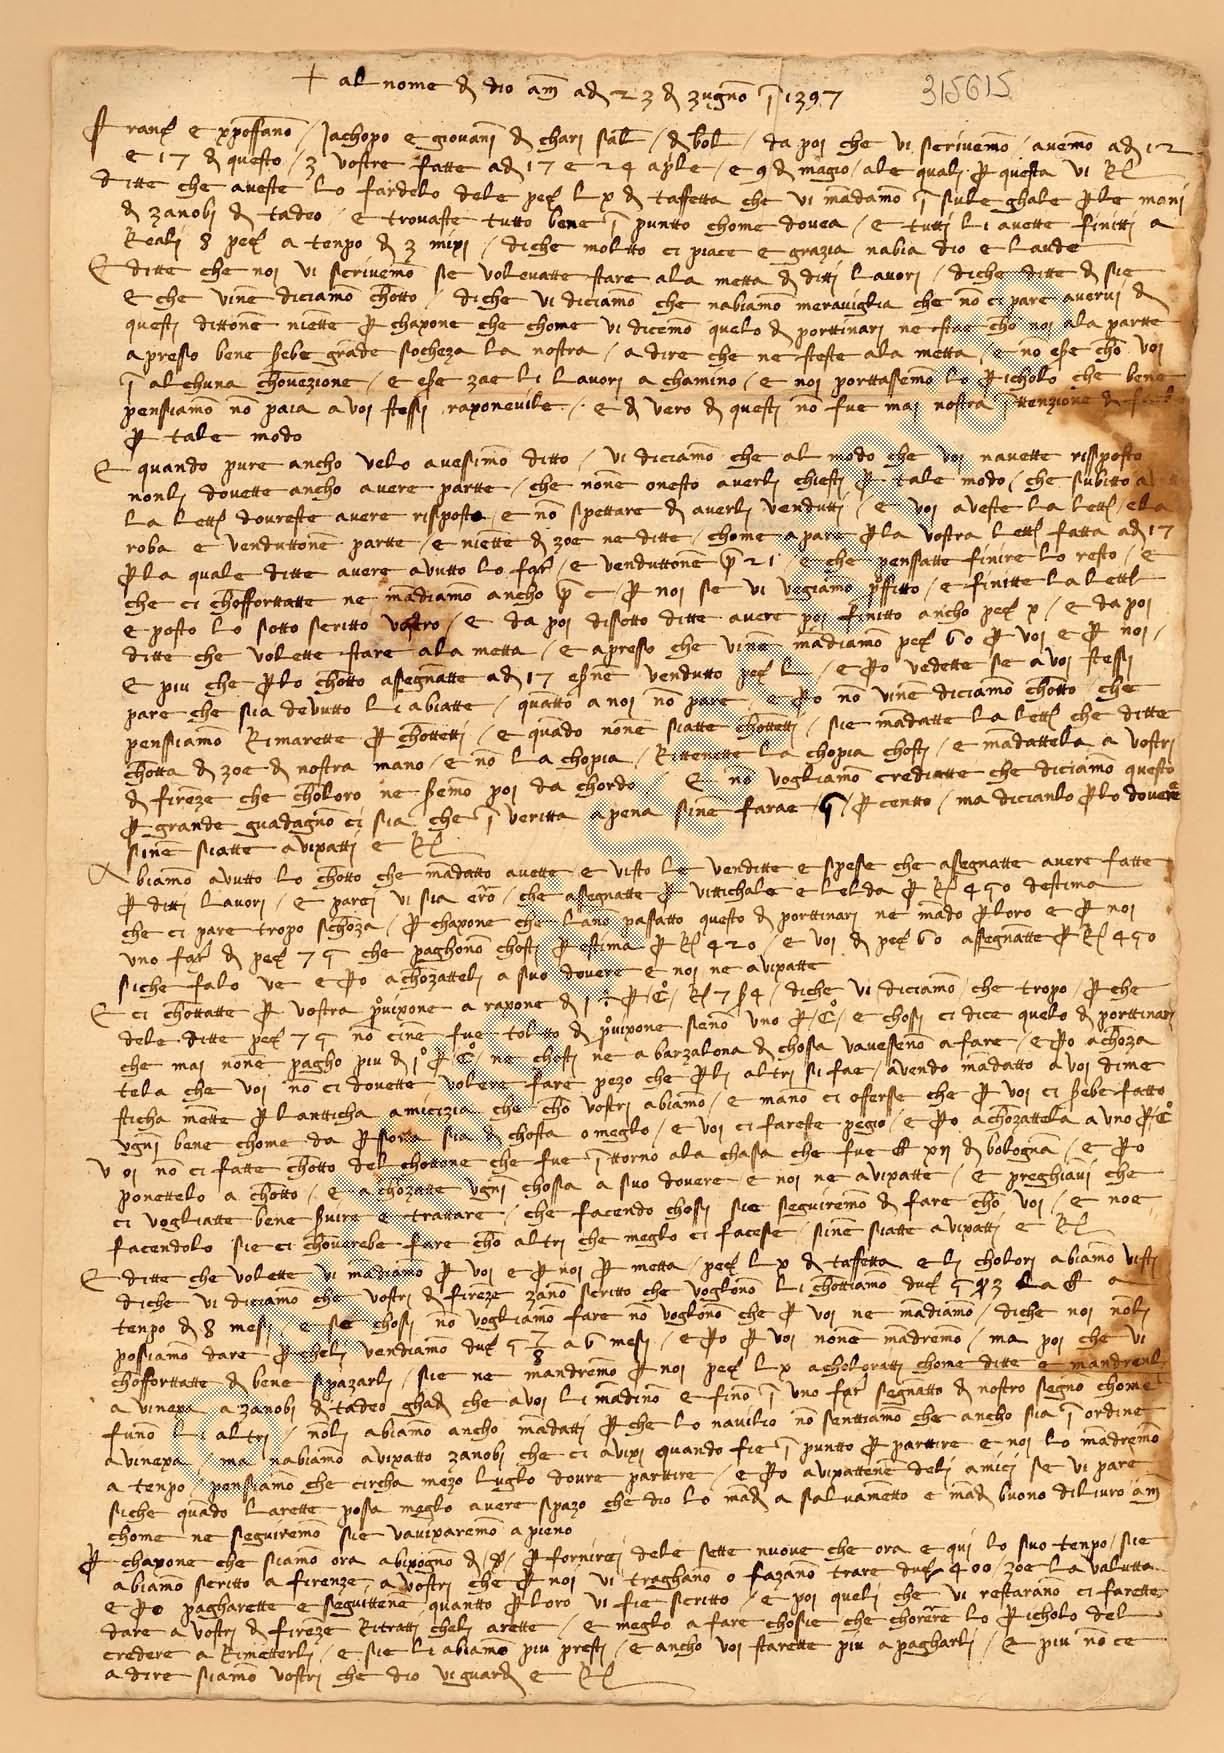 + al nome di dio am̄ adi 23 di zugno ī 1397
315615
Franc̄ e xp̄offano / Jachopo e giovanī di chari sal̄ / di bol̄ / da poi che vi scrivemō / avemō adi 12
e 17 di questo / 3 vostre fatte adi 17 e 24 ap̄le / e 9 di magio / ale quali p̄ questa vi R̄
ditte che aveste lo fardelo dele pec̄ lx di taffetta che vi mādamō ī sule ghale p̄ le mani
di zanobi di tadeo / e trovaste tutto bene ī puntto chome dovea / e tutti li avette finitti a
Reali 8 pec̄ a tenpo di 3 mixi / diche moltto ci piace e grazia nabia dio e laude
E ditte che noi vi scrivemō se volevatte stare ala metta di ditti lavori / diche ditte di sie
e che vinē diciamō chōtto / diche vi diciamō che nabiamō meraviglia che nō ci pare avervi di
questi dittonē niette p̄ chaxone che chome vi dicemō quelo di porttinari ne stae chō noi ala partte
apresso bene s̄ebe grāde socheza la nostra / a dire che ne steste ala metta / e nō ese chō voi
ī alchuna chōvezione / e ese zae li lavori a chamino / e noi porttasemō lo p̄icholo che bene
pensiamō nō paia a voi stessi raxonevile / e di vero di questi nō fue mai nostra īttenzione di
p̄ tale modo
E quando pure ancho velo avesimō ditto / vi diciamō che al modo che voi navette rissposto
nonli dovette ancho avere partte / che nonē onesto averli chiesti p̄ tale modo / che subitto
la lett̄ doureste avere risposto / e nō spettare di averli vendutti / e voi aveste la lett̄ / e la
roba e venduttonē partte / e niette di zoe ne ditte / chome apare p̄ la vostra lett̄ fatta adi 17
p̄ la quale ditte avere avutto lo far̄ / e venduttonē p̄ 21 / e che penssatte finire lo resto / e
che ci chōfforttatte ne mādiamō ancho p̄ c / p̄ noi se vi vegiamō p̄fitto / e finitte la lett̄
e posto lo sotto scritto vostro / e da poi dissotto ditte avere poi finitto ancho pec̄ x / e da poi
ditte che volette stare ala metta / e apresso che vinē mādiamō pec̄ 60 p̄ voi e p̄ noi /
E piu che p̄ lo chōtto assegnatte adi 17 es̄nē vendutto pec̄ L / e p̄o vedette se a voi stessi
pare che sia devutto li abiatte / quatto a noi nō pare / e p̄o nō vinē diciamō chōtto / che
pensiamō Rimarette p̄ chōttetti / e quādo nonē siatte chōttetti / sie mādatte la lett̄ che ditte
chōtta di zoe di nostra mano / e nō la chopia / Rittenette la chopia chosti / e mādattela a vostri
di firēze che choloro ne s̄emō poi da chordo / E nō vogliamō crediatte che diciamō questo
p̄ grande guadagno ci sia che ī veritta apena sinē farae / 5 / p̄ centto / ma diciālo p̄ lo dovere
sinē siatte avixatti e R̄
Abiamō avutto lo chōtto che mādatto avette e visto le venditte e spese che asegnatte avere fatte
p̄ ditti lavori / e parci vi sia erō / che assegnatte p̄ vittichale e lelda p̄ R̄ 450 destima
che ci pare tropo schōza / p̄ chaxone che lanō passatto questo di porttinari ne mādo p̄ loro e p̄ noi
uno far̄ di pec̄ 75 che paghonō chosti p̄ estima p̄ R̄ 420 / e voi di pec̄ 60 assegnatte p̄ R̄ 450
siche falo ve e p̄o achōzatteli a suo dovere e noi ne avixatte
E ci chōttatte p̄ vostra p̄vixone a raxone di / diche vi diciamō che tropo / p̄ che
dele ditte pec̄ 75 nō cinē fue toltto di p̄vixone senō uno p̄ C° / e chosi ci dice quelo di porttinari
che mai nonē pagho piu di 1° p̄ C° / ne chosti ne a barzalona di chossa vavessenō a fare / e p̄o achōza
tela che voi nō ci dovette volere fare pezo che p̄ li altri si fae / avendo mādatto a voi dime
sticha mette p̄ lanticha amicizia che chō vostri abiamō / e manō ci offerse che p̄ voi ci s̄ebe fatto
ugnī bene chome da p̄ssona sia di chosta o meglo / e voi ci fareste pegio / e p̄o achōzattela a uno p̄ C°
Voi nō ci fatte chōtto del chottone che fue īttorno ala chassa che fue xii di bologna / e p̄o
ponettelo a chōtto / e achōzatte ugnī chossa a suo dovere e noi ne avixatte / e preghiavi che
ci vogliatte bene s̄vire e trattare / che facendo chosi sie seguiremō di fare chō voi / e noe
facendolo sie ci chōverebe fare chō altri che meglo ci facese / sinē siatte avixatti e R̄
E ditte che volette vi mādiamō p̄ voi e p̄ noi p̄ metta / pec̄ lx di taffetta e li cholori abiamō visti
diche vi diciamō che vostri di firēze zanō scritto che voglonō li chōttiamō duc̄ 5 3 la a
tenpo di 8 mesi / e se chosi nō vogliamō fare nō voglonō che p̄ voi ne mādiamō / diche noi nōli
possiamō dare p̄ cheli vendiamō duc̄ 5 7/8 a 6 mesi / e p̄o p̄ voi nonē mādremō / ma poi che vi
chōfforttatte di bene spazarli / sie ne mandremō p̄ noi pec̄ lx acholoratti chome ditte e mandrenli
a vinexa a zanobi di tadeo ghadi che a voi li mādino e fino ī uno far̄ segnatto di nostro segno chome
funō li altri / nōli abiamō ancho mādatti p̄ che lo navilio nō senttiamō che ancho sia ī ordine
a vinexa / ma nabiamō avixatto zanobi che ci avixi quando fie ī puntto p̄ parttire e noi lo mādremō
a tenpo / pensiamō che circha mezo luglo doure parttire / e p̄o avixattenē deli amici se vi pare
siche quādo larette possa meglo avere spazo che dio lo mādi a salvametto e mādi buono diliuro am̄
chome ne seguiremō sie vavixaremō apieno
P̄ chaxone che siamō ora abixogno di / p̄ fornirci dele sette nuove che ora e qui lo suo tenpo / sie
abiamō scritto a firenze a vostri che p̄ noi vi traghanō o fazanō trare duc̄ 400 / zoe la valutta
e p̄o pagharette e seguittene quantto p̄ loro vi fie scritto / e poi queli che vi restaranō ci farette
dare a vostri di firēze Ritratti cheli arette / e meglo a fare chosie che chorere lo p̄icholo del
credere a Rimetterli / e sie li abiamō piu presti / e ancho voi starette piu a pagharli / e piu nō ce
a dire siamō vostri che dio vi guardi e R̄